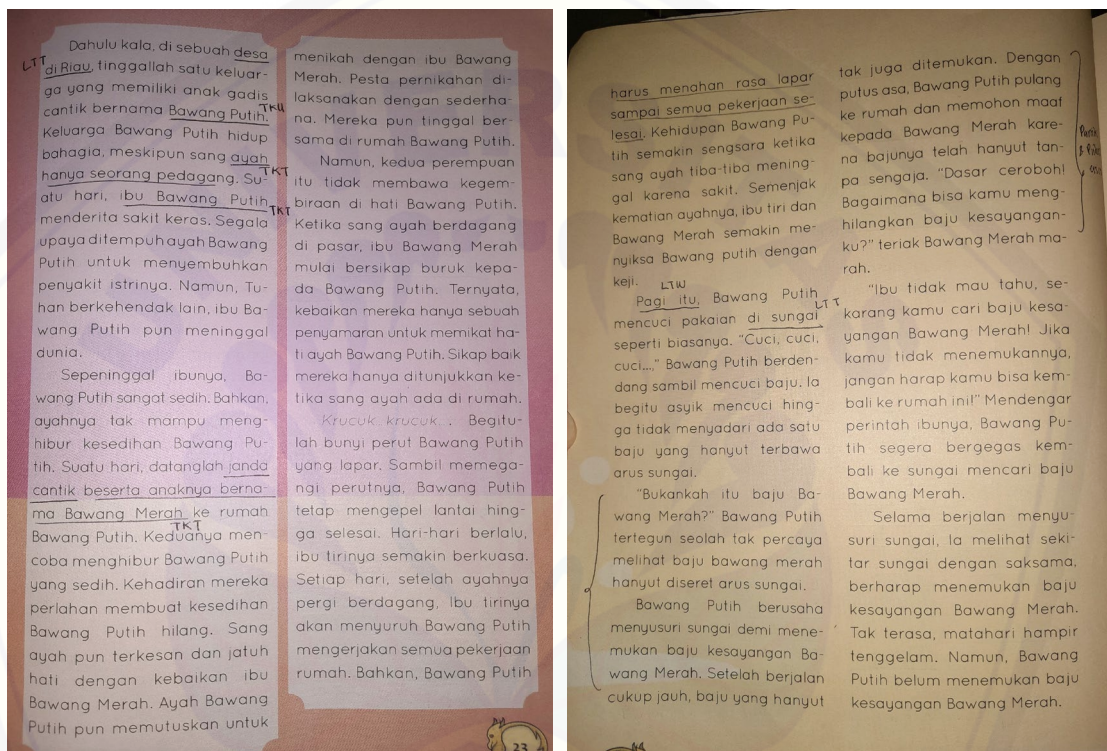 Dahulu kala, di sebuah desa
LTT
di Riau, tinggallah satu keluar-
ga yang memiliki anak gadis
cantik bernama Bawang Putih.
TKU
Keluarga Bawang Putih hidup
bahagia, meskipun sang ayah
hanya seorang pedagang. Su-
TKT
atu hari, ibu Bawang Putih
TKT
menderita sakit keras. Segala
upaya ditempuh ayah Bawang
Putih untuk menyembuhkan
penyakit istrinya. Namun, Tu-
han berkehendak lain, ibu Ba-
wang Putih pun meninggal
dunia.
Sepeninggal ibunya, Ba-
wang Putih sangat sedih. Bahkan,
ayahnya tak mampu meng-
hibur kesedihan Bawang Pu-
tih. Suatu hari, datanglah janda
cantik beserta anaknya berna-
ma Bawang Merah ke rumah
TKT
Bawang Putih. Keduanya men-
coba menghibur Bawang Putih
yang sedih. Kehadiran mereka
perlahan membuat kesedihan
Bawang Putih hilang. Sang
ayah pun terkesan dan jatuh
hati dengan kebaikan ibu
Bawang Merah. Ayah Bawang
Putih pun memutuskan untuk
menikah dengan ibu Bawang
Merah. Pesta pernikahan di-
laksanakan dengan sederha-
na. Mereka pun tinggal ber-
sama di rumah Bawang Putih.
Namun, kedua perempuan
itu tidak membawa kegem-
biraan di hati Bawang Putih.
Ketika sang ayah berdagang
di pasar, ibu Bawang Merah
mulai bersikap buruk kepa-
da Bawang Putih. Ternyata,
kebaikan mereka hanya sebuah
penyamaran untuk memikat ha-
ti ayah Bawang Putih. Sikap baik
mereka hanya ditunjukkan ke-
tika sang ayah ada di rumah.
Krucuk krucuk... Begitu-
lah bunyi perut Bawang Putih
yang lapar. Sambil memega-
ngi perutnya, Bawang Putih
tetap mengepel lantai hing-
ga selesai. Hari-hari berlalu,
ibu tirinya semakin berkuasa.
Setiap hari, setelah ayahnya
pergi berdagang, Ibu tirinya
akan menyuruh Bawang Putih
mengerjakan semua pekerjaan
rumah. Bahkan, Bawang Putih
23
harus menahan rasa lapar
sampai semua pekerjaan se-
lesai. Kehidupan Bawang Pu-
tih semakin sengsara ketika
sang ayah tiba-tiba mening-
gal karena sakit. Semenjak
kematian ayahnya, ibu tiri dan
Bawang Merah semakin me-
nyiksa Bawang putih dengan
keji.
LTW
Pagi itu, Bawang Putih
LTT
mencuci pakaian di sungai
seperti biasanya. "Cuci, cuci,
cuci...," Bawang Putih berden-
dang sambil mencuci baju. Ia
begitu asyik mencuci hing-
ga tidak menyadari ada satu
baju yang hanyut terbawa
arus sungai.
"Bukankah itu baju Ba-
wang Merah?" Bawang Putih
tertegun seolah tak percaya
melihat baju bawang merah
hanyut diseret arus sungai.
Bawang Putih berusaha
menyusuri sungai demi mene-
mukan baju kesayangan Ba-
wang Merah. Setelah berjalan
cukup jauh, baju yang hanyut
tak juga ditemukan. Dengan
putus asa, Bawang Putih pulang
ke rumah dan memohon maaf
kepada Bawang Merah kare-
na bajunya telah hanyut tan-
pa sengaja. "Dasar ceroboh!
Bagaimana bisa kamu meng-
hilangkan baju kesayangan-
ku?" teriak Bawang Merah ma-
rah.
"Ibu tidak mau tahu, se-
karang kamu cari baju kesa-
yangan Bawang Merah! Jika
kamu tidak menemukannya,
jangan harap kamu bisa kem-
bali ke rumah ini!" Mendengar
perintah ibunya, Bawang Pu-
tih segera bergegas kem-
bali ke sungai mencari baju
Bawang Merah.
Selama berjalan menyu-
suri sungai, Ia melihat seki-
tar sungai dengan saksama,
berharap menemukan baju
kesayangan Bawang Merah.
Tak terasa, matahari hampir
tenggelam. Namun, Bawang
Putih belum menemukan baju
kesayangan Bawang Merah.